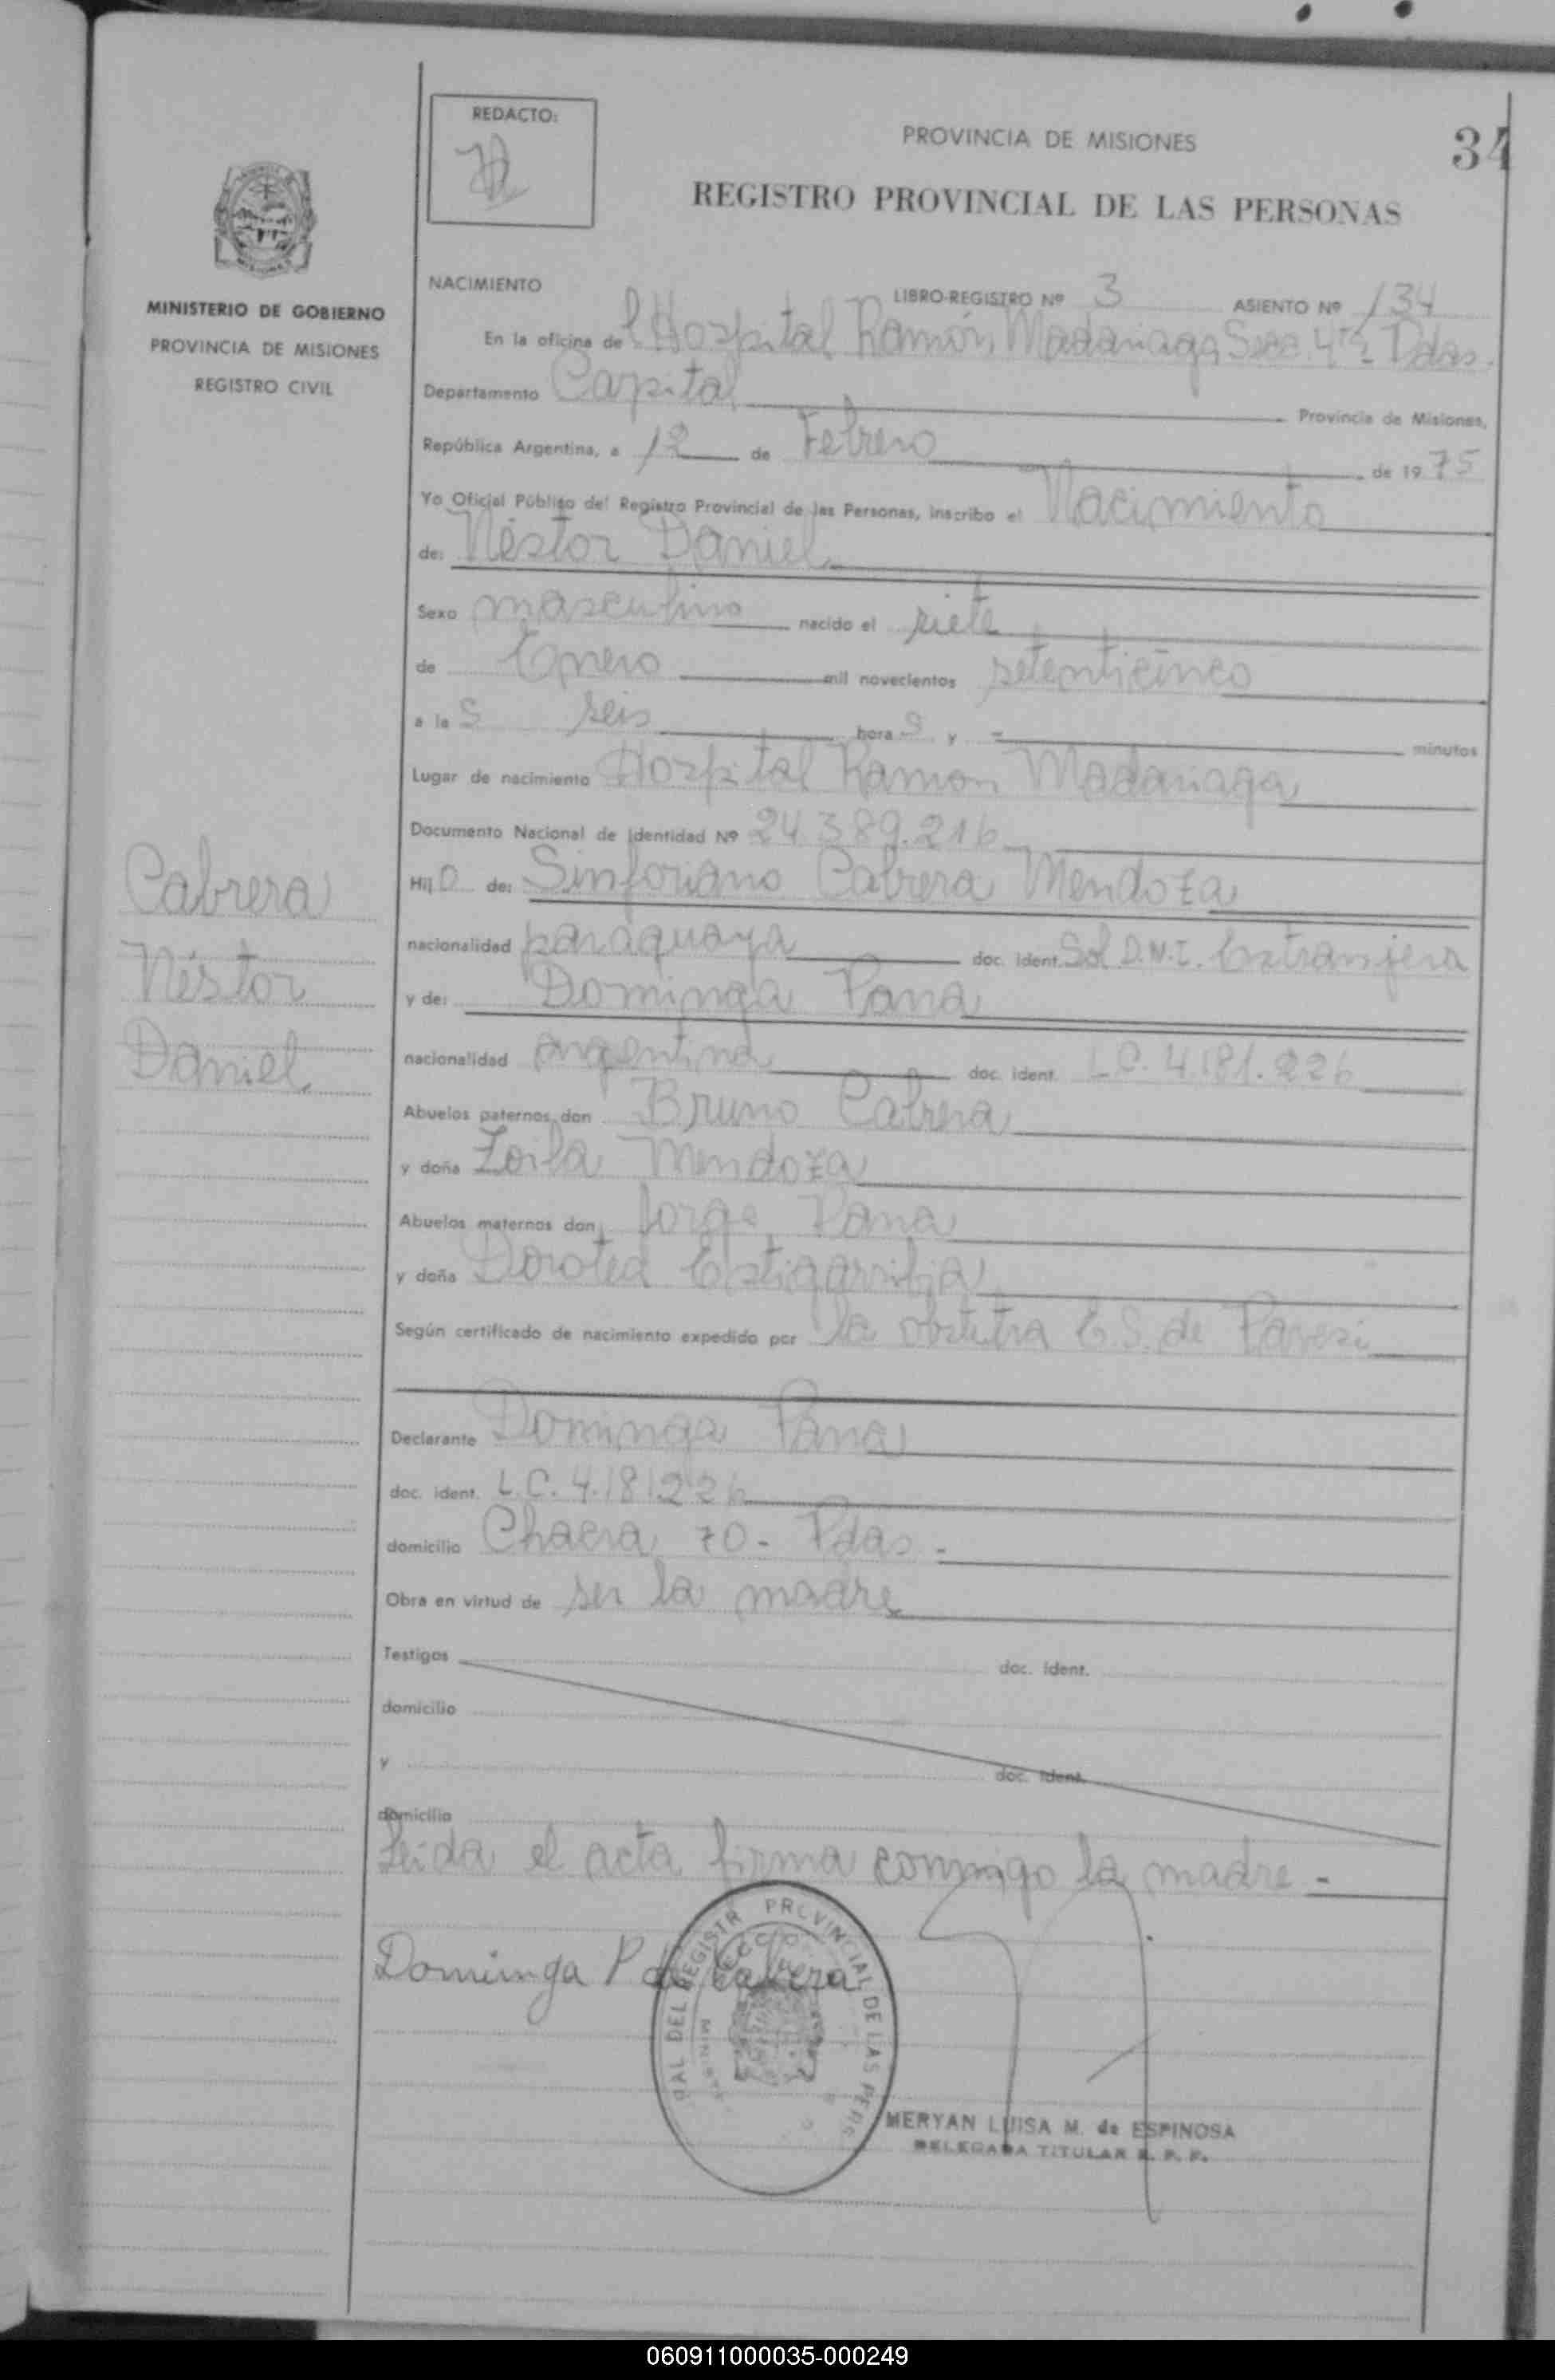 REDACTO:
PROVINCIA DE MISIONES
34
REGISTRO PROVINCIAL DE LAS PERSONAS
MINISTERIO DE GOBIERNO
PROVINCIA DE MISIONES
REGISTRO CIVIL
NACIMIENTO
LIBRO-REGISTRO Nº 3 ASIENTO Nº 134
En la oficina del Hospital Ramón Madariaga Secc. 4ta Pdas.
Departamento Capital Provincia de Misiones,
República Argentina, a 12 de Febrero de 1975
Yo Oficial Público del Registro Provincial de las Personas, inscribo el Nacimiento
de: Néstor Daniel
Sexo masculino nacido el siete
de Enero mil novecientos setenticinco
a las seis horas y = minutos
Lugar de nacimiento Hospital Ramón Madariaga
Documento Nacional de Identidad Nº 24.389.216
Hijo de: Sinforiano Cabrera Mendoza
nacionalidad paraguaya doc. ident. Sol D.N.I. Extranjera
y de: Dominga Pana
nacionalidad argentina doc. ident. L.C. 4.181.226
Abuelos paternos don Bruno Cabrera
y doña Zoila Mendoza
Abuelos maternos don Jorge Pana
y doña Dorotea Estigarribia
Según certificado de nacimiento expedido por la obstetra E.S. de Paresi
Declarante Dominga Pana
doc. ident. L.C. 4.181.226
domicilio Chacra 70 - Pdas -
Obra en virtud de ser la madre
Testigos doc. ident.
domicilio
y doc. ident.
domicilio
Leída el acta firma conmigo la madre -
Cabrera
Néstor
Daniel
Dominga P. de Cabrera
DEL REGISTR PROVINCIAL DE LAS PERS
MERYAN LUISA M. de ESPINOSA
DELEGADA TITULAR R. P. P.
060911000035-000249